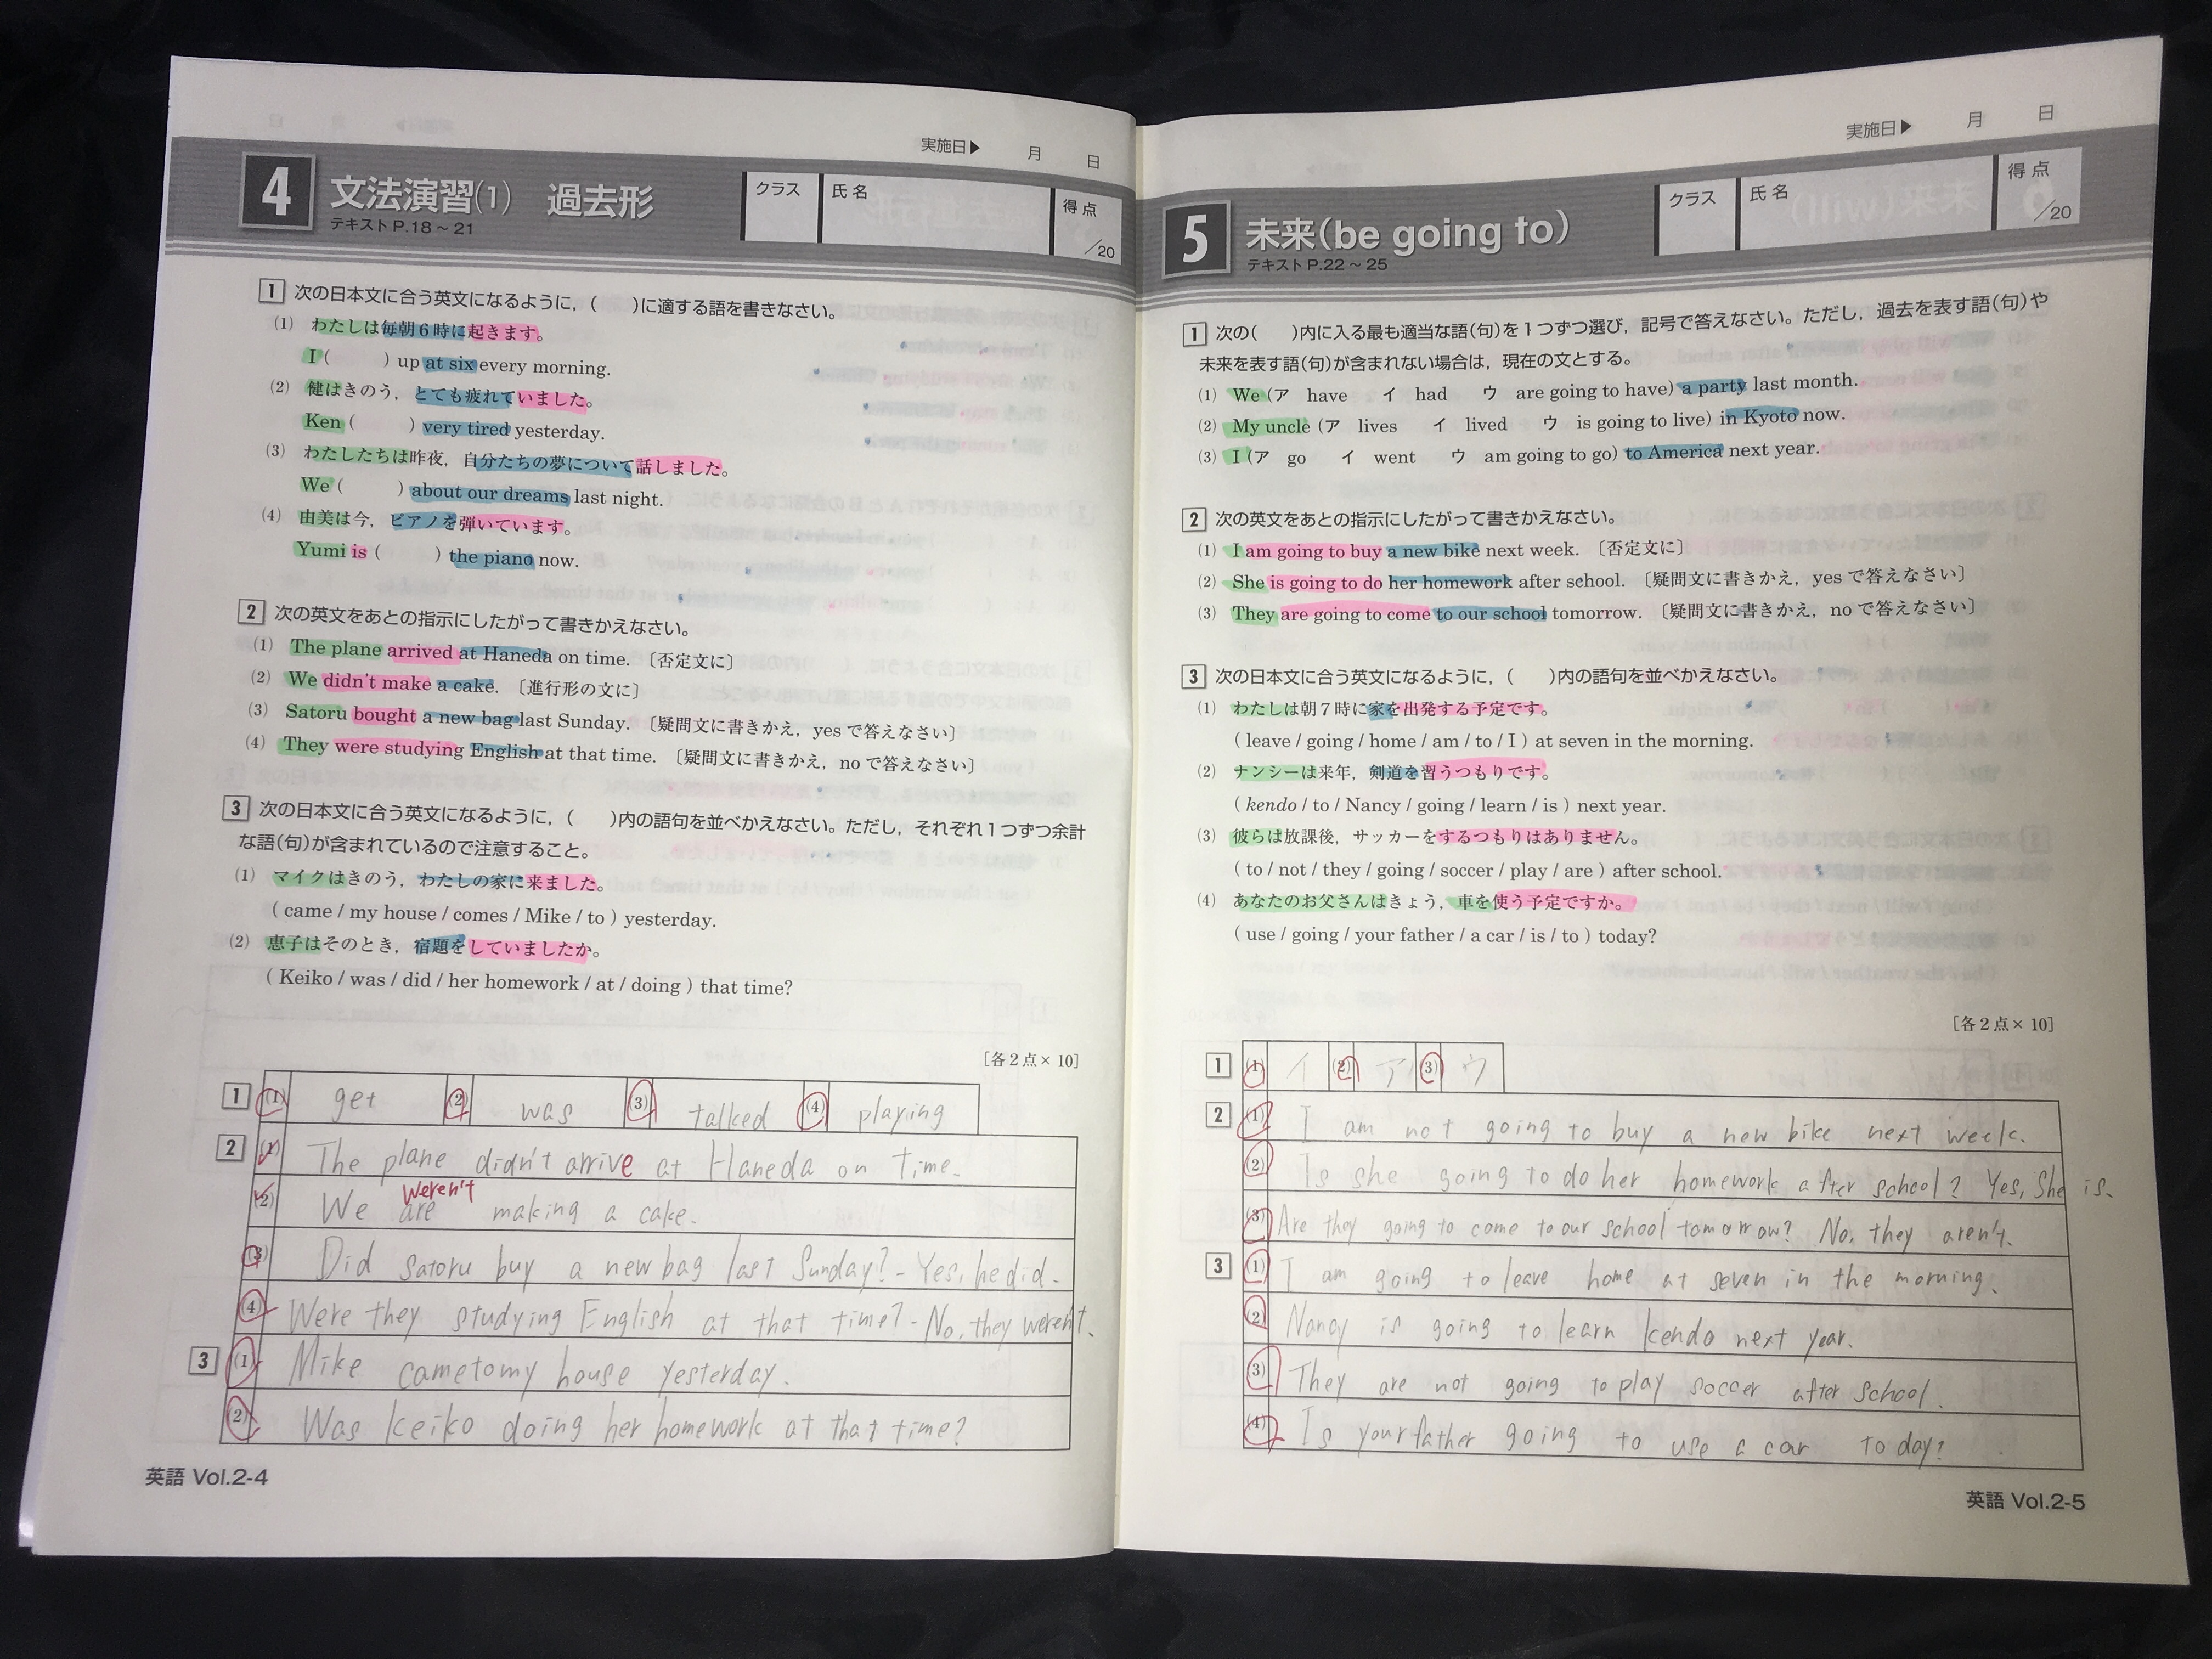 実施日▶ 月 日
4 文法演習(1) 過去形
テキストP.18～21
クラス 氏名 得点 /20
1 次の日本文に合う英文になるように，( )に適する語を書きなさい。
(1) わたしは毎朝6時に起きます。
I ( ) up at six every morning.
(2) 健はきのう，とても疲れていました。
Ken ( ) very tired yesterday.
(3) わたしたちは昨夜，自分たちの夢について話しました。
We ( ) about our dreams last night.
(4) 由美は今，ピアノを弾いています。
Yumi is ( ) the piano now.
2 次の英文をあとの指示にしたがって書きかえなさい。
(1) The plane arrived at Haneda on time. 〔否定文に〕
(2) We didn't make a cake. 〔進行形の文に〕
(3) Satoru bought a new bag last Sunday. 〔疑問文に書きかえ，yesで答えなさい〕
(4) They were studying English at that time. 〔疑問文に書きかえ，noで答えなさい〕
3 次の日本文に合う英文になるように，( )内の語句を並べかえなさい。ただし，それぞれ1つずつ余計
な語(句)が含まれているので注意すること。
(1) マイクはきのう，わたしの家に来ました。
( came / my house / comes / Mike / to ) yesterday.
(2) 恵子はそのとき，宿題をしていましたか。
( Keiko / was / did / her homework / at / doing ) that time?
[各2点×10]
1 (1) get (2) was (3) talked (4) playing
2 (1) The plane didn't arrive at Haneda on time.
weren't
(2) We are making a cake.
(3) Did Satoru buy a new bag last Sunday? - Yes, he did.
(4) Were they studying English at that time? - No, they weren't.
3 (1) Mike came to my house yesterday.
(2) Was Keiko doing her homework at that time?
英語 Vol.2-4
実施日▶ 月 日
5 未来(be going to)
テキストP.22～25
クラス 氏名 得点 /20
1 次の( )内に入る最も適当な語(句)を1つずつ選び，記号で答えなさい。ただし，過去を表す語(句)や
未来を表す語(句)が含まれない場合は，現在の文とする。
(1) We (ア have イ had ウ are going to have) a party last month.
(2) My uncle (ア lives イ lived ウ is going to live) in Kyoto now.
(3) I (ア go イ went ウ am going to go) to America next year.
2 次の英文をあとの指示にしたがって書きかえなさい。
(1) I am going to buy a new bike next week. 〔否定文に〕
(2) She is going to do her homework after school. 〔疑問文に書きかえ，yesで答えなさい〕
(3) They are going to come to our school tomorrow. 〔疑問文に書きかえ，noで答えなさい〕
3 次の日本文に合う英文になるように，( )内の語句を並べかえなさい。
(1) わたしは朝7時に家を出発する予定です。
( leave / going / home / am / to / I ) at seven in the morning.
(2) ナンシーは来年，剣道を習うつもりです。
( kendo / to / Nancy / going / learn / is ) next year.
(3) 彼らは放課後，サッカーをするつもりはありません。
( to / not / they / going / soccer / play / are ) after school.
(4) あなたのお父さんはきょう，車を使う予定ですか。
( use / going / your father / a car / is / to ) today?
[各2点×10]
1 (1) イ (2) ア (3) ウ
2 (1) I am not going to buy a new bike next week.
(2) Is she going to do her homework after school? Yes, She is.
(3) Are they going to come to our school tomorrow? No, they aren't.
3 (1) I am going to leave home at seven in the morning.
(2) Nancy is going to learn kendo next year.
(3) They are not going to play soccer after school.
(4) Is your father going to use a car today?
英語 Vol.2-5